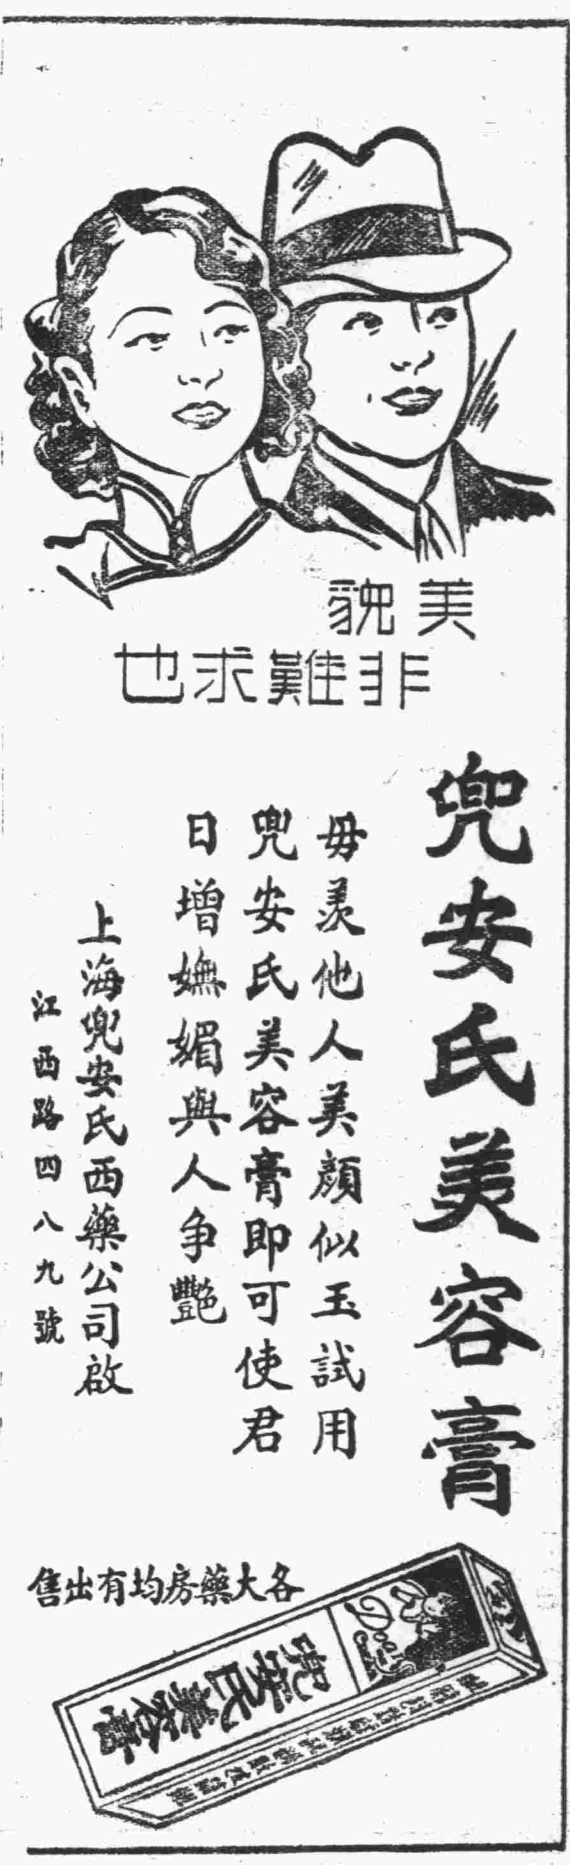 美貌
非難求也
兜安氏美容膏
毋羨他人美顔似玉試用
兜安氏美容膏即可使君
日增嫵媚與人争艷
上海兜安氏西藥公司啟
江西路四八九號
各大藥房均有出售
Doan's
兜安氏美容膏